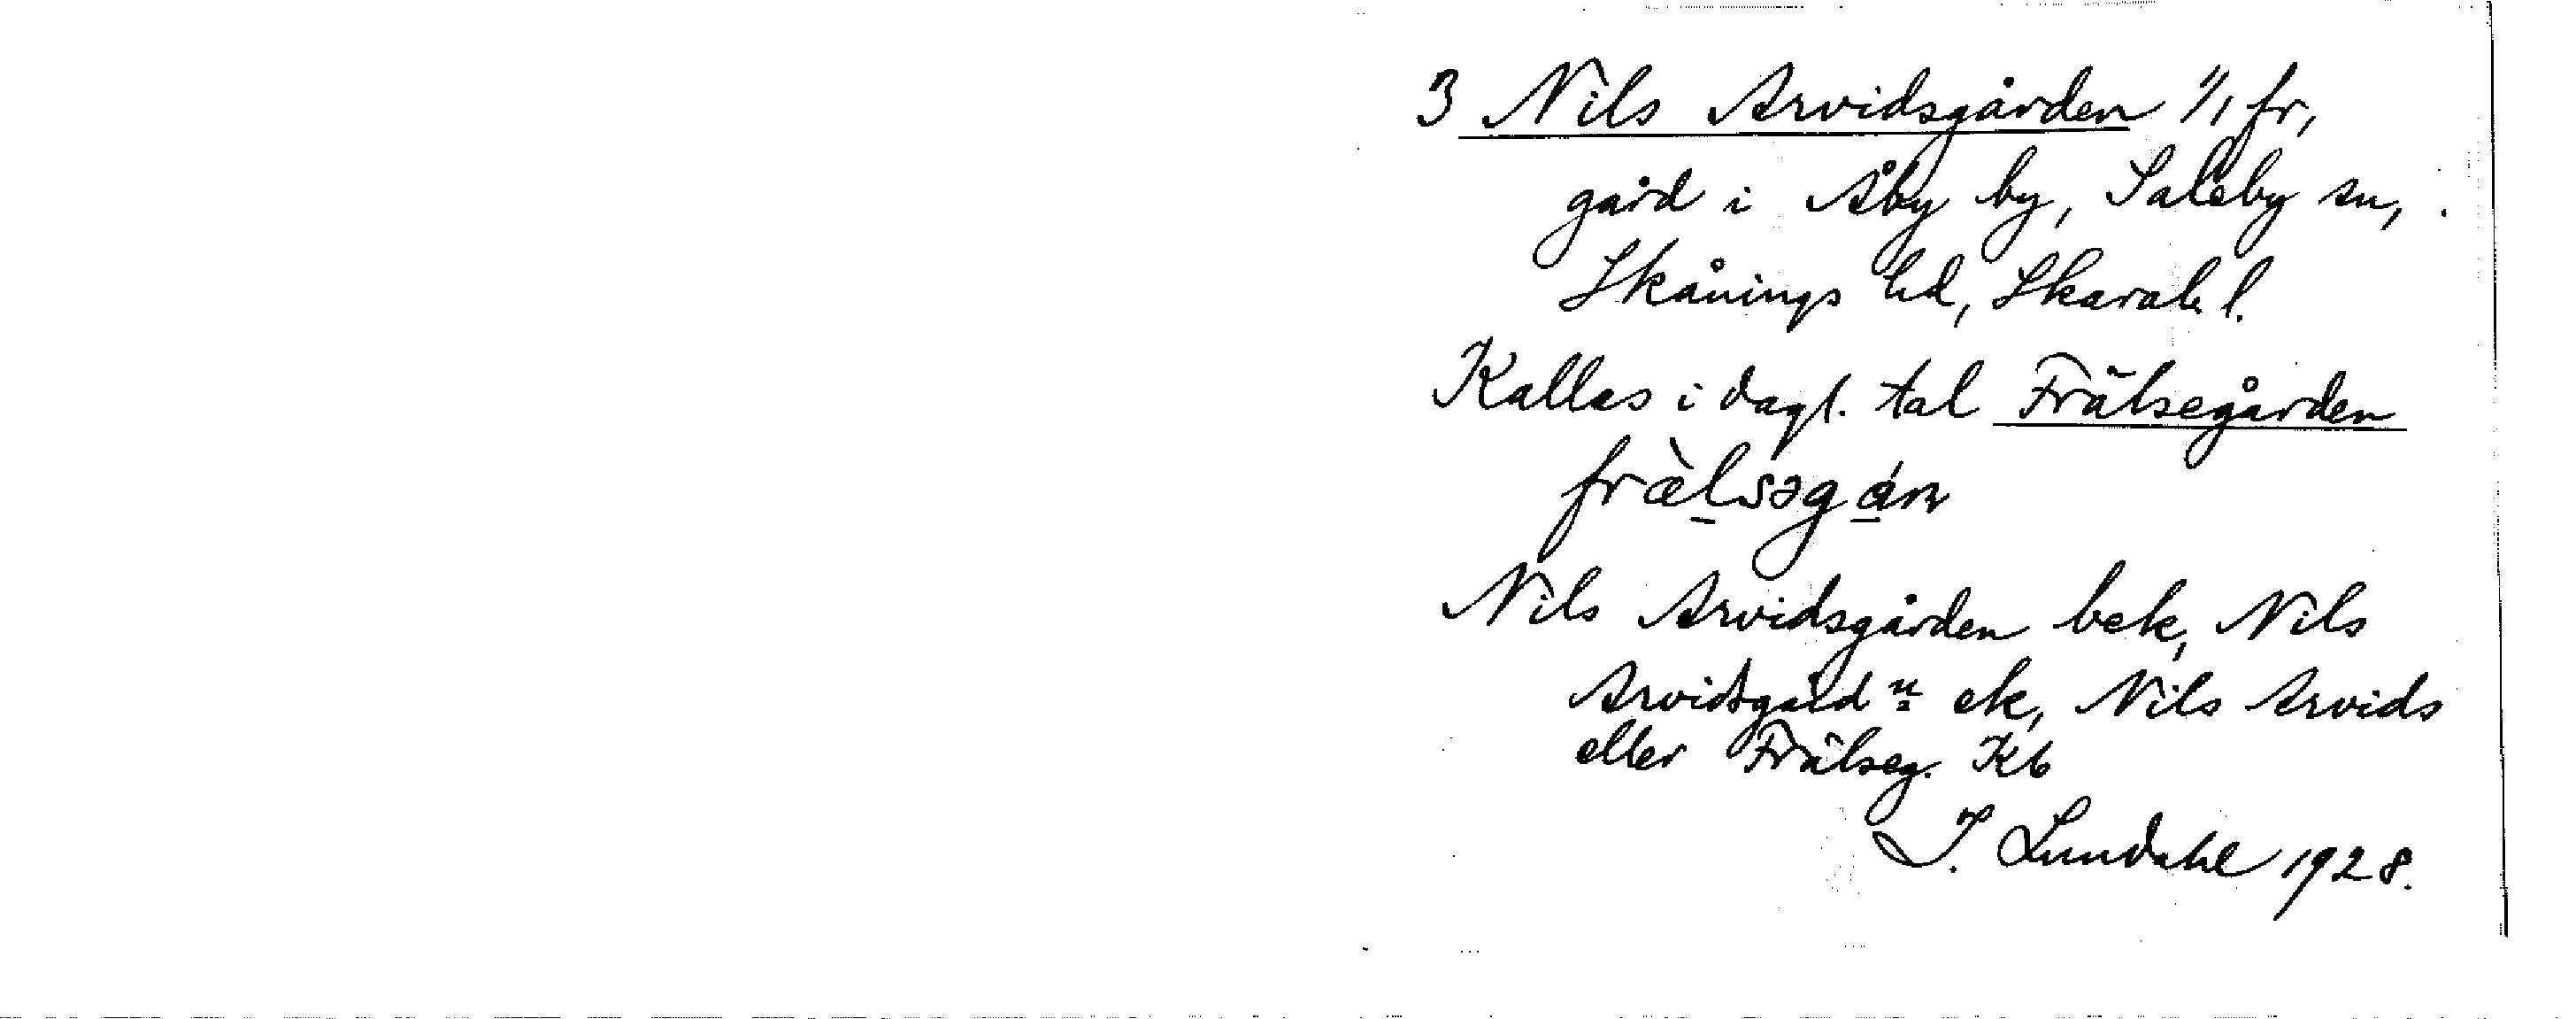 3 Nils Arvidsgården 1/1 fr,
gård i Åby by, Saleby sn,
Skånings hd, Skarab. l.
Kallas i dagl. tal Frälsegården
frὰlsəgán
Nils Arvidsgården bek, Nils
Arvidsgård n ek, Nils Arvids
eller Frälseg. Kb
I. Lundahl 1928.